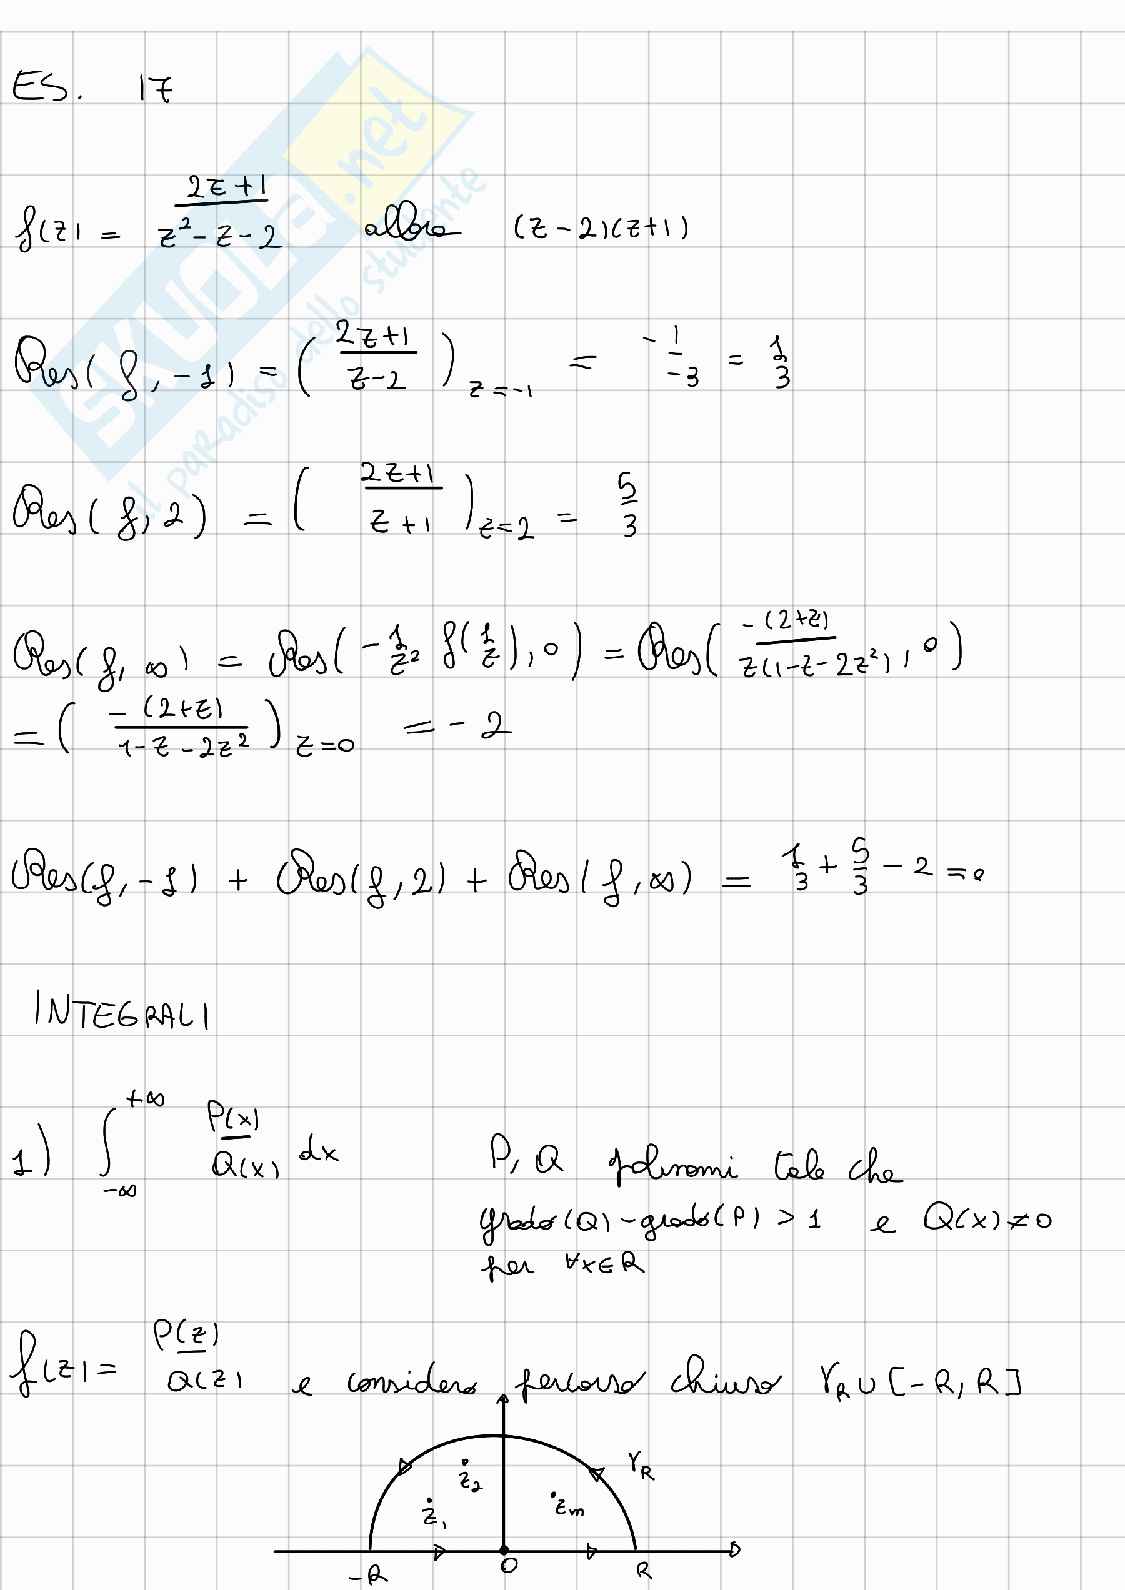 ES. 17
f(z) = 2z+1 / z² - z - 2 allora (z-2)(z+1)
Res(f, -1) = ( 2z+1 / z-2 ) z=-1 = -1 / -3 = 1/3
Res(f, 2) = ( 2z+1 / z+1 ) z=2 = 5/3
Res(f, ∞) = Res( -1/z² f(1/z), 0 ) = Res( -(2+z) / z(1-z-2z²), 0 )
= ( -(2+z) / 1-z-2z² ) z=0 = -2
Res(f, -1) + Res(f, 2) + Res(f, ∞) = 1/3 + 5/3 - 2 = 0
INTEGRALI
1) ∫ -∞ +∞ P(x) / Q(x) dx P, Q polinomi tale che
grado(Q) - grado(P) > 1 e Q(x) ≠ 0
per ∀x∈R
f(z) = P(z) / Q(z) e considero percorso chiuso γR ∪ [-R, R]
z₂ γR
z₁ zm
-R 0 R
SKUOLA.net
il paradiso dello studente